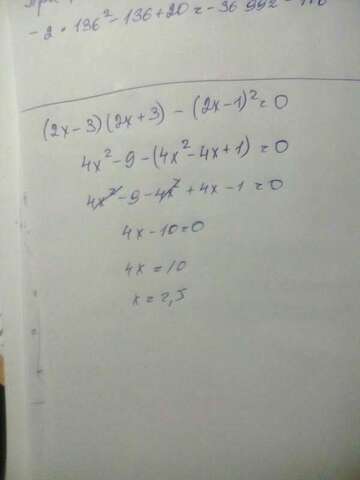 -2 * 136² - 136 + 20 = -36 992 -
(2x-3)(2x+3) - (2x-1)² = 0
4x² - 9 - (4x² - 4x + 1) = 0
4x² - 9 - 4x² + 4x - 1 = 0
4x - 10 = 0
4x = 10
x = 2,5